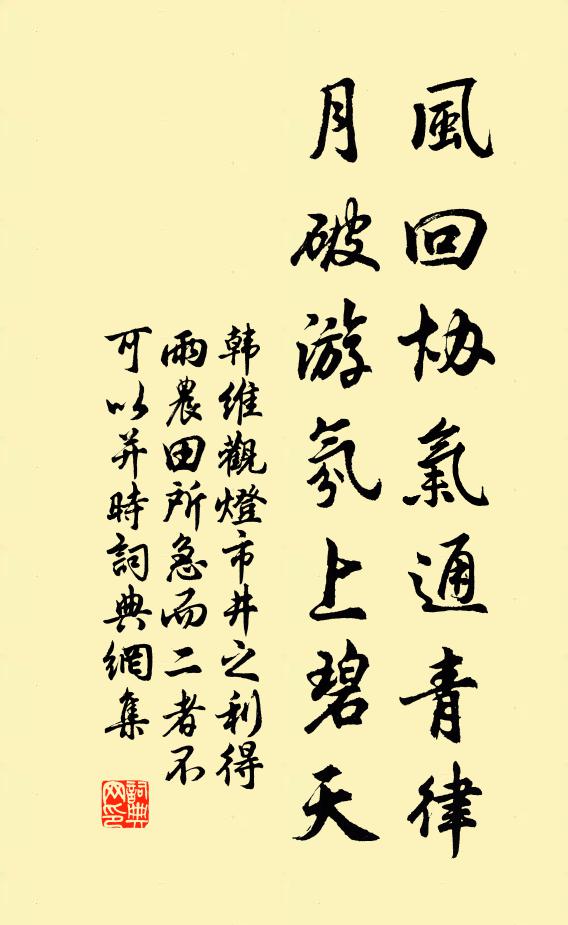 風回协氣通青律
月破游氛上碧天
韩維觀燈市井之利得
雨農田所急而二者不
可以并時詞典網集
詞典
网印